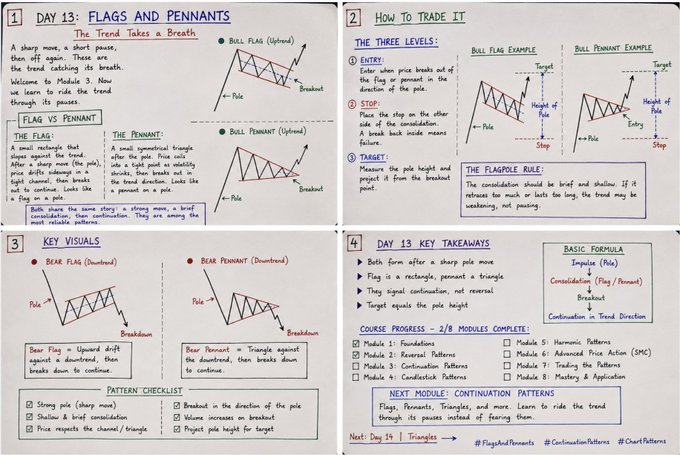 1
DAY 13: FLAGS AND PENNANTS
The Trend Takes a Breath
A sharp move, a short pause,
then off again. These are
the trend catching its breath.
Welcome to Module 3. Now
we learn to ride the trend
through its pauses.
FLAG VS PENNANT
THE FLAG:
A small rectangle that
slopes against the trend.
After a sharp move (the pole),
price drifts sideways in a
tight channel, then breaks
out to continue. Looks like
a flag on a pole.
THE PENNANT:
A small symmetrical triangle
after the pole. Price coils
into a tight point as volatility
shrinks, then breaks out in
the trend direction. Looks like
a pennant on a pole.
Both share the same story: a strong move, a brief
consolidation, then continuation. They are among the
most reliable patterns.
BULL FLAG (Uptrend)
Pole
Breakout
BULL PENNANT (Uptrend)
Pole
Breakout
2
HOW TO TRADE IT
THE THREE LEVELS:
1 ENTRY:
Enter when price breaks out of
the flag or pennant in the
direction of the pole.
2 STOP:
Place the stop on the other
side of the consolidation.
A break back inside means
failure.
3 TARGET:
Measure the pole height and
project it from the breakout
point.
BULL FLAG EXAMPLE
Target
Height of
Pole
Pole
Stop
BULL PENNANT EXAMPLE
Target
Height of
Pole
Entry
Pole
Stop
THE FLAGPOLE RULE:
The consolidation should be brief and shallow. If it
retraces too much or lasts too long, the trend may be
weakening, not pausing.
3
KEY VISUALS
BEAR FLAG (Downtrend)
Pole
Breakdown
Bear Flag = Upward drift
against a downtrend, then
breaks down to continue.
BEAR PENNANT (Downtrend)
Pole
Breakdown
Bear Pennant = Triangle
against the downtrend, then
breaks down to continue.
PATTERN CHECKLIST
Strong pole (sharp move)
Shallow & brief consolidation
Price respects the channel/triangle
Breakout in the direction of the pole
Volume increases on breakout
Project pole height for target
4
DAY 13 KEY TAKEAWAYS
Both form after a sharp pole move
Flag is a rectangle, pennant a triangle
They signal continuation, not reversal
Target equals the pole height
BASIC FORMULA
Impulse (Pole)
Consolidation (Flag / Pennant)
Breakout
Continuation in Trend Direction
COURSE PROGRESS - 2/8 MODULES COMPLETE:
Module 1: Foundations
Module 2: Reversal Patterns
Module 3: Continuation Patterns
Module 4: Candlestick Patterns
Module 5: Harmonic Patterns
Module 6: Advanced Price Action (SMC)
Module 7: Trading the Patterns
Module 8: Mastery & Application
NEXT MODULE: CONTINUATION PATTERNS
Flags, Pennants, Triangles, and more. Learn to ride the trend
through its pauses instead of fearing them.
Next: Day 14 | Triangles
#FlagsAndPennants #ContinuationPatterns #ChartPatterns